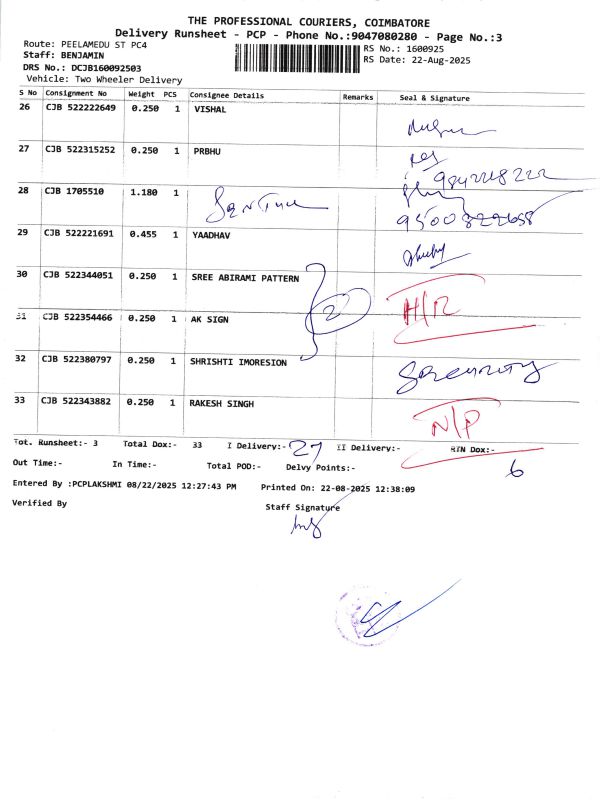 THE PROFESSIONAL COURIERS, COIMBATORE
Delivery Runsheet - PCP - Phone No.:9047080280 - Page No.:3
Route: PEELAMEDU ST PC4
RS No.: 1600925
Staff: BENJAMIN
RS Date: 22-Aug-2025
DRS No.: DCJB160092503
Vehicle: Two Wheeler Delivery
S No Consignment No Weight PCS Consignee Details Remarks Seal & Signature
26 CJB 522222649 0.250 1 VISHAL
27 CJB 522315252 0.250 1 PRBHU
9842218222
28 CJB 1705510 1.180 1
9500822658
29 CJB 522221691 0.455 1 YAADHAV
30 CJB 522344051 0.250 1 SREE ABIRAMI PATTERN
2 H/R
31 CJB 522354466 0.250 1 AK SIGN
32 CJB 522380797 0.250 1 SHRISHTI IMORESION
Security
33 CJB 522343882 0.250 1 RAKESH SINGH
N/P
Tot. Runsheet:- 3 Total Dox:- 33 I Delivery:- 27 II Delivery:- RTN Dox:- 6
Out Time:- In Time:- Total POD:- Delvy Points:-
Entered By :PCPLAKSHMI 08/22/2025 12:27:43 PM Printed On: 22-08-2025 12:38:09
Verified By Staff Signature